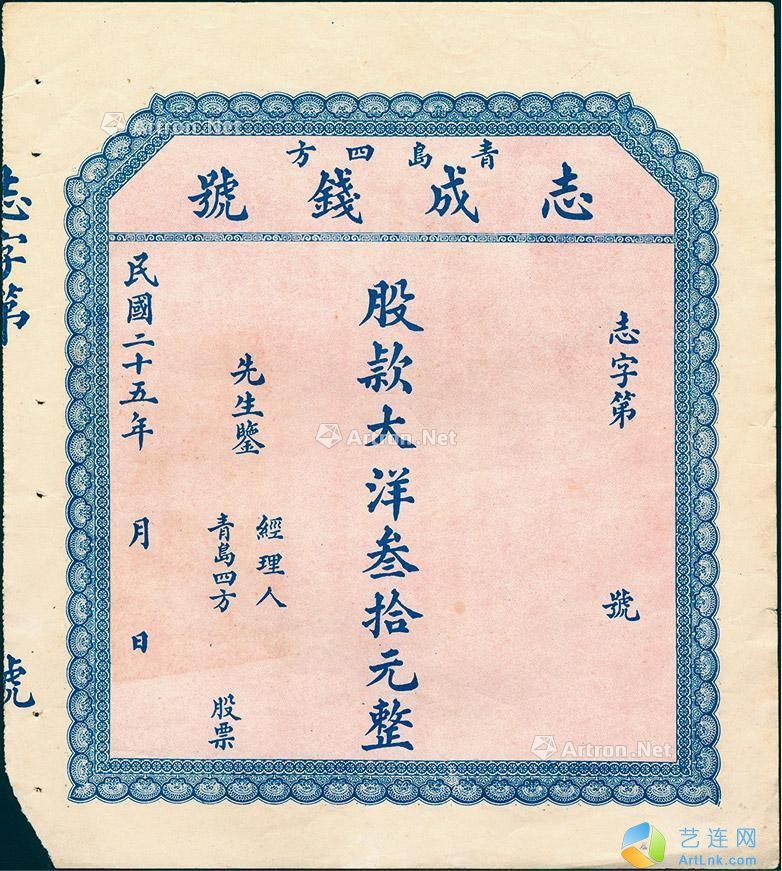 青島四方
志成錢號
志字第 號
股款大洋叁拾元整
經理人
先生鑒
青島四方 股票
民國二十五年 月 日
志字第 號
Artron.Net
Artron.Net
Artron.Net
艺连网
ArtLnk.com